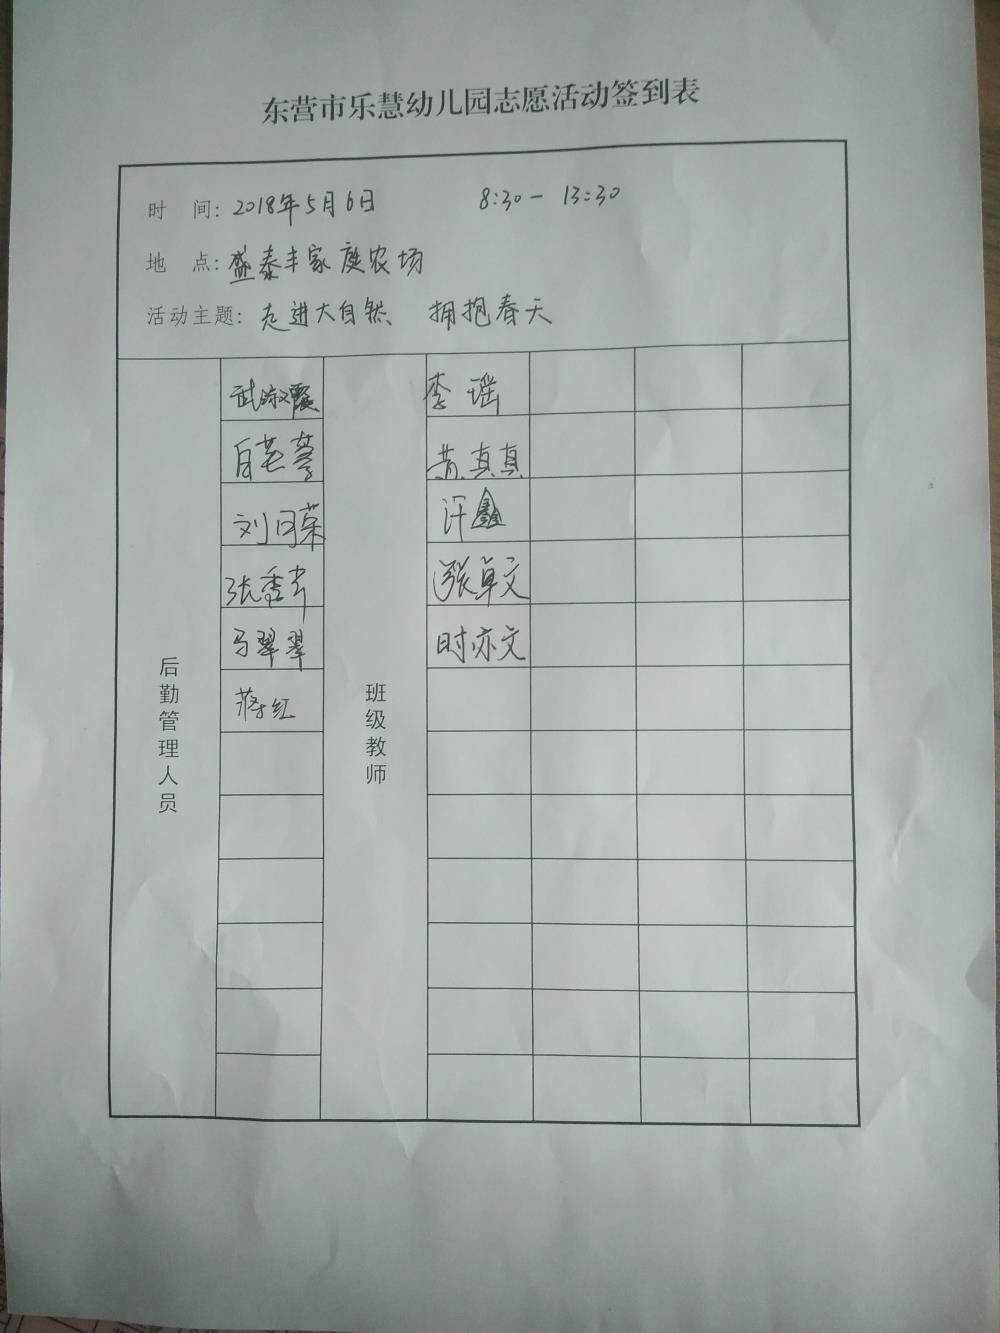 东营市乐慧幼儿园志愿活动签到表
时 间: 2018年5月6日 8:30 - 13:30
地 点: 盛泰丰家庭农场
活动主题: 走进大自然 拥抱春天
后勤管理人员
武淑霞
刘同荣
张秀芹
马翠翠
蒋红
班级教师
李瑶
黄真真
许鑫
张卓文
时亦文